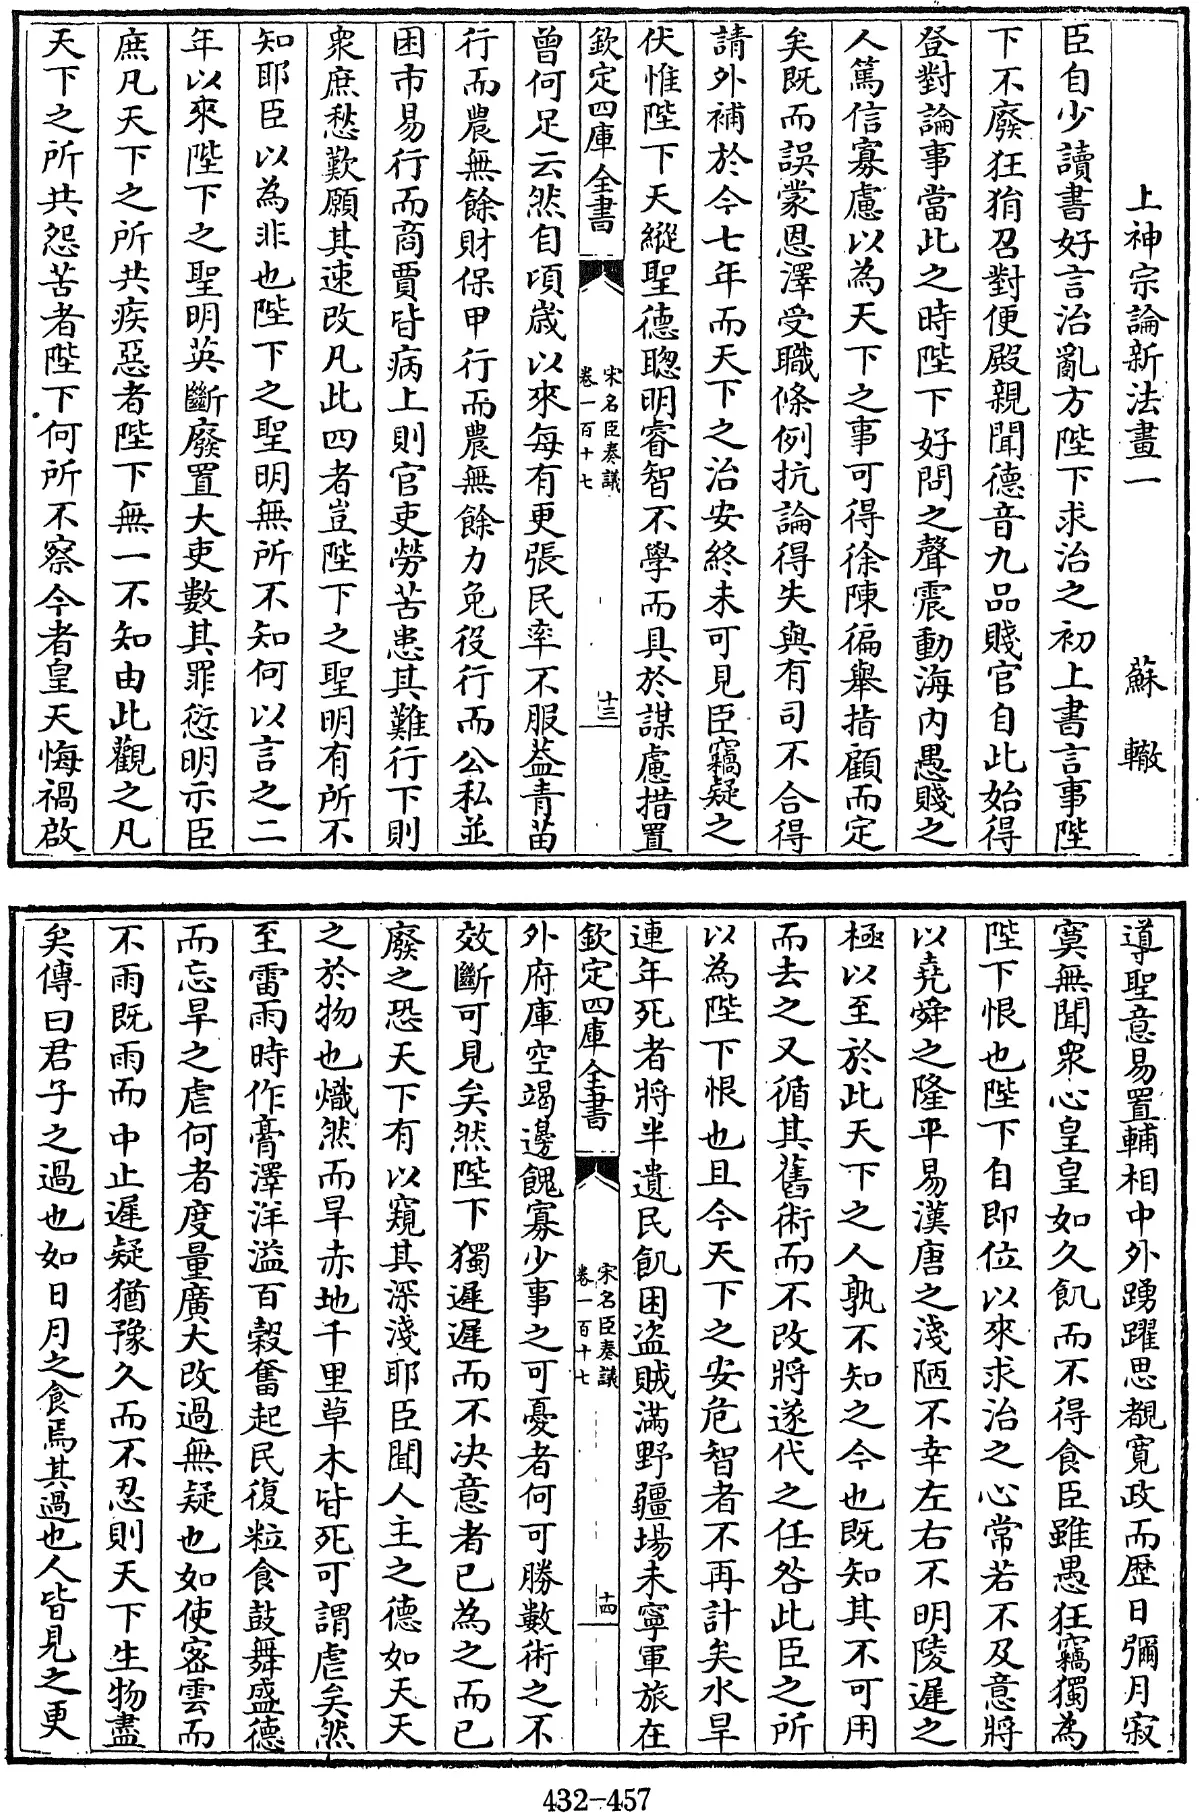 上神宗論新法畫一 蘇轍
臣自少讀書好言治亂方陛下求治之初上書言事陛
下不廢狂狷召對便殿親聞德音九品賤官自此始得
登對論事當此之時陛下好問之聲震動海內愚賤之
人篤信寡慮以為天下之事可得徐陳徧舉指顧而定
矣既而誤蒙恩澤受職條例抗論得失與有司不合得
請外補於今七年而天下之治安終未可見臣竊疑之
伏惟陛下天縱聖德聰明睿智不學而具於謀慮措置
欽定四庫全書 宋名臣奏議 卷一百十七 十三
曾何足云然自頃歲以來每有更張民率不服葢青苗
行而農無餘財保甲行而農無餘力免役行而公私並
困市易行而商賈皆病上則官吏勞苦患其難行下則
衆庶愁歎願其速改凡此四者豈陛下之聖明有所不
知耶臣以為非也陛下之聖明無所不知何以言之二
年以來陛下之聖明英斷廢置大吏數其罪愆明示臣
庶凡天下之所共疾惡者陛下無一不知由此觀之凡
天下之所共怨苦者陛下何所不察今者皇天悔禍啟
導聖意易置輔相中外踴躍思覩寛政而歷日彌月寂
寞無聞衆心皇皇如久飢而不得食臣雖愚狂竊獨為
陛下恨也陛下自即位以來求治之心常若不及意將
以堯舜之隆平易漢唐之淺陋不幸左右不明陵遲之
極以至於此天下之人孰不知之今也既知其不可用
而去之又循其舊術而不改將遂代之任咎此臣之所
以為陛下恨也且今天下之安危智者不再計矣水旱
連年死者將半遺民飢困盗賊滿野疆場未寧軍旅在
欽定四庫全書 宋名臣奏議 卷一百十七 十四
外府庫空竭邊餽寡少事之可憂者何可勝數術之不
效斷可見矣然陛下獨遲遲而不决意者已為之而已
廢之恐天下有以窺其深淺耶臣聞人主之德如天天
之於物也熾然而旱赤地千里草木皆死可謂虐矣然
至雷雨時作膏澤洋溢百穀奮起民復粒食鼓舞盛德
而忘旱之虐何者度量廣大改過無疑也如使密雲而
不雨既雨而中止遲疑猶豫久而不忍則天下生物盡
矣傳曰君子之過也如日月之食焉其過也人皆見之更
432-457